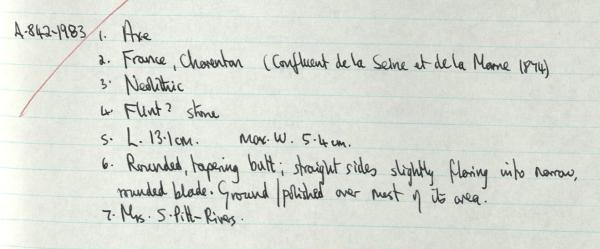 A.842-1983 1. Axe
2. France, Charenton (Confluent de la Seine et de la Marne 1874)
3. Neolithic
4. Flint? stone
5. L. 13.1cm. Max. W. 5.4cm.
6. Rounded, tapering butt; straight sides slightly flaring into narrow,
rounded blade. Ground/polished over most of its area.
7. Mrs. S. Pitt-Rivers.